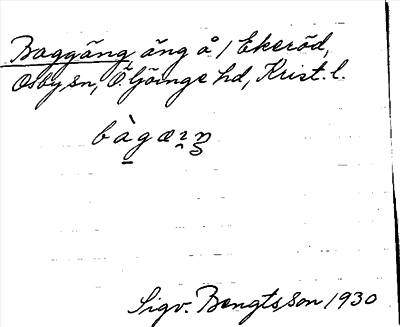 Baggäng, äng å / Ekeröd,
Osby sn, Ö. Göinge hd, Krist. l.
bàgæŋ
Sigv. Bengtsson 1930